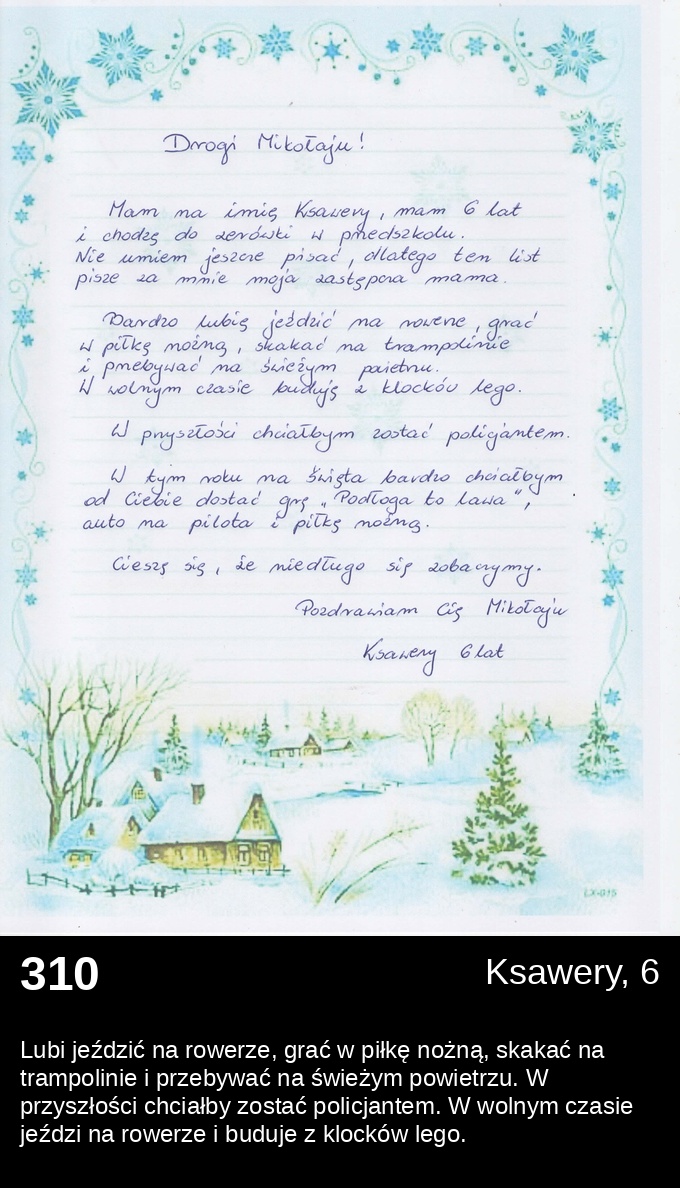 Drogi Mikołaju!
Mam na imię Ksawery, mam 6 lat
i chodzę do zerówki w przedszkolu.
Nie umiem jeszcze pisać, dlatego ten list
pisze za mnie moja zastępcza mama.
Bardzo lubię jeździć na rowerze, grać
w piłkę nożną, skakać na trampolinie
i przebywać na świeżym powietrzu.
W wolnym czasie buduję z klocków lego.
W przyszłości chciałbym zostać policjantem.
W tym roku na Święta bardzo chciałbym
od Ciebie dostać grę „Podłoga to lawa",
auto na pilota i piłkę nożną.
Cieszę się, że niedługo się zobaczymy.
Pozdrawiam Cię Mikołaju
Ksawery 6 lat
LX-015
310
Ksawery, 6
Lubi jeździć na rowerze, grać w piłkę nożną, skakać na
trampolinie i przebywać na świeżym powietrzu. W
przyszłości chciałby zostać policjantem. W wolnym czasie
jeździ na rowerze i buduje z klocków lego.